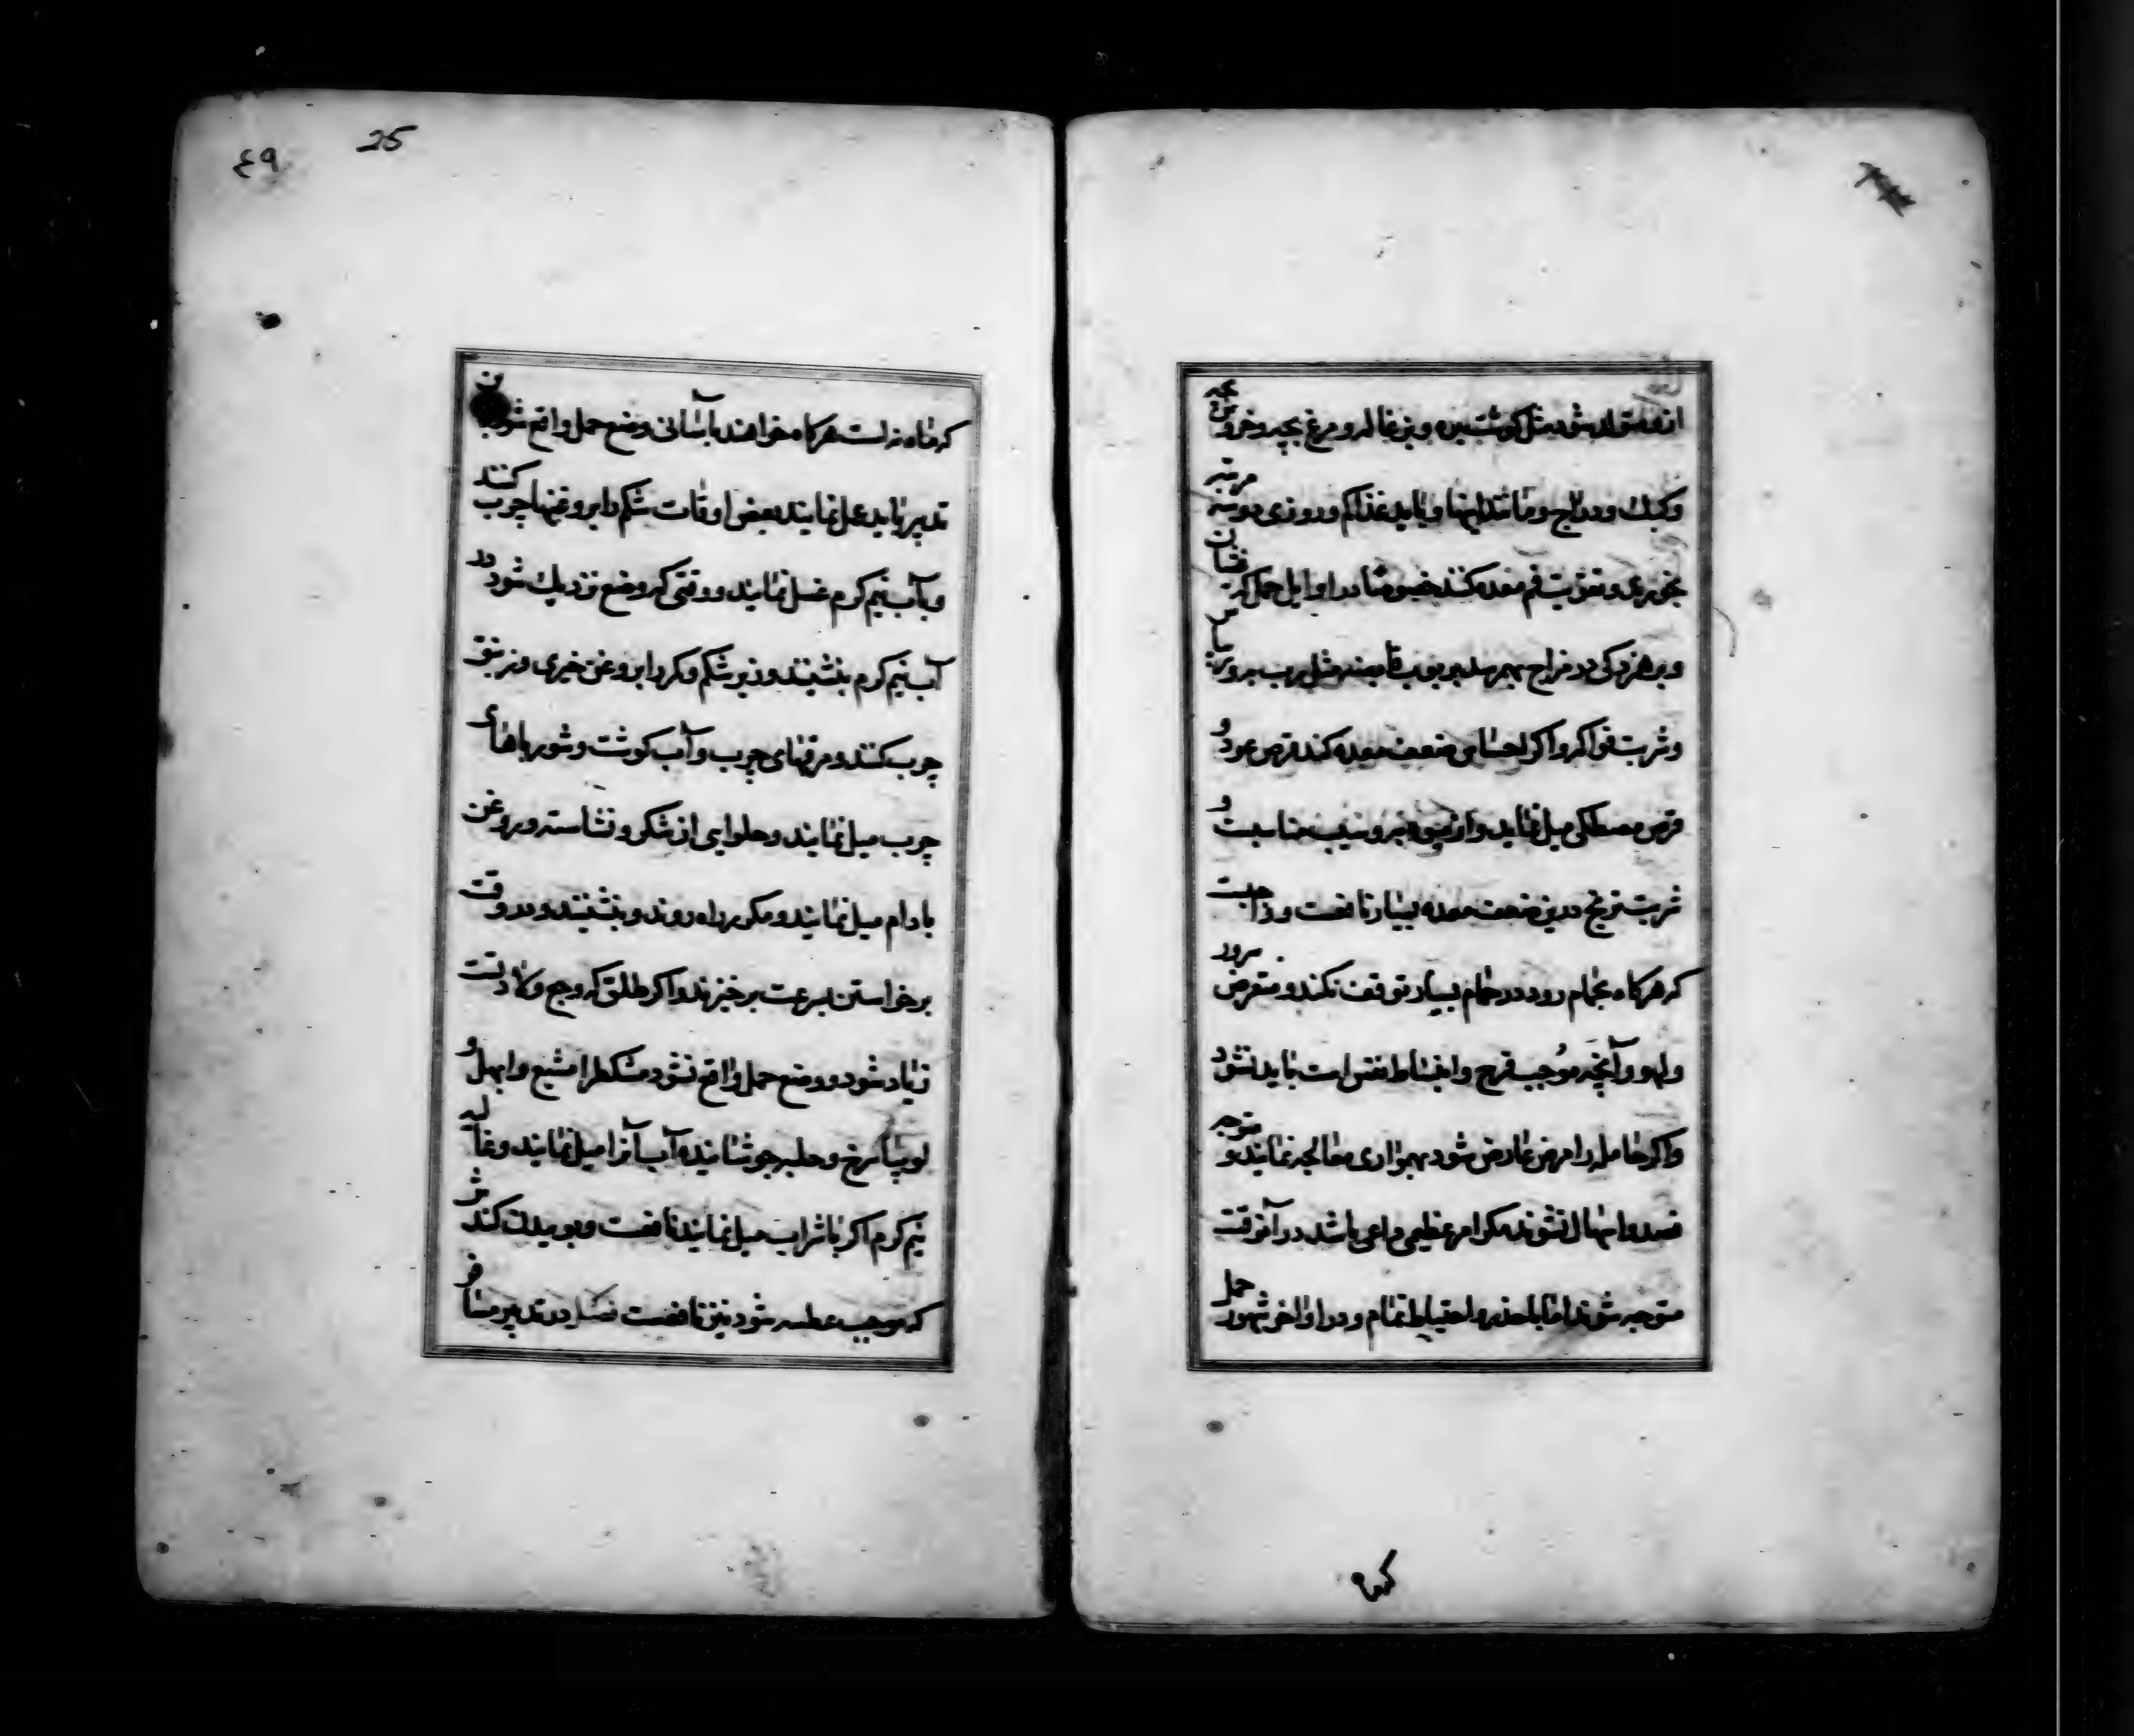 از و متولد شود مثل گوشت بره و بزغاله و مرغ بچه و خروس بچه
و کبک و دراج و مانند اینها و باید غذا کم و روزی دو سه مرتبه
بخورند و تقویت فم معده کنند خصوصا در اوایل حمل که
و شربت فواکه و اگر احساس ضعف معده کند قرص عود و
قرص مصطکی میل نماید و از میوه به و سیب مناسبست و
شربت ترنج درین ضعف معده بسیار نافعست و واجبست
که هرگاه بحمام رود در حمام بسیار توقف نکند و متعرض سرور
و لهو و آنچه موجب فرح و انبساط نفس است باید نشود
و اگر حامله را مرض عارض شود بهمواری معالجه نمایند و متوجه
فصد و اسهال نشوند مگر امر عظیمی داعی باشد در آنوقت
متوجه شوند اما با حذر و احتیاط تمام و در اواخر شهور حمل
که ماه
٤٩
25
که ماه نه است هرگاه خواهند بآسانی وضع حمل واقع شود
تدبیر باید عمل نمایند بعض اوقات شکم را بروغنها چرب کنند
و بآب نیم گرم غسل نمایند و وقتی که وضع نزدیک شود در
آب نیم گرم بنشینند و زیر شکم و کمر را بروغن خیری و زنبق
چرب کنند و مرقهای چرب و آب گوشت و شوربا های
چرب میل نمایند و حلوایی از شکر و نشاسته و روغن
بادام میل نمایند و مکرر راه روند و بنشینند و در وقت
برخواستن بسرعت برخیزند و اگر طلق که وجع ولادتست
زیاد شود و وضع حمل واقع نشود مشکطرامشیع و ابهل و
لوبیا سرخ و حلبه جوشانیده آب آنرا میل نمایند و غالیه
نیم گرم اگر با شراب میل نمایند نافعست و بوییدن کندش
که موجب عطسه شود نیز نافعست فصل در تدبیر مسافر